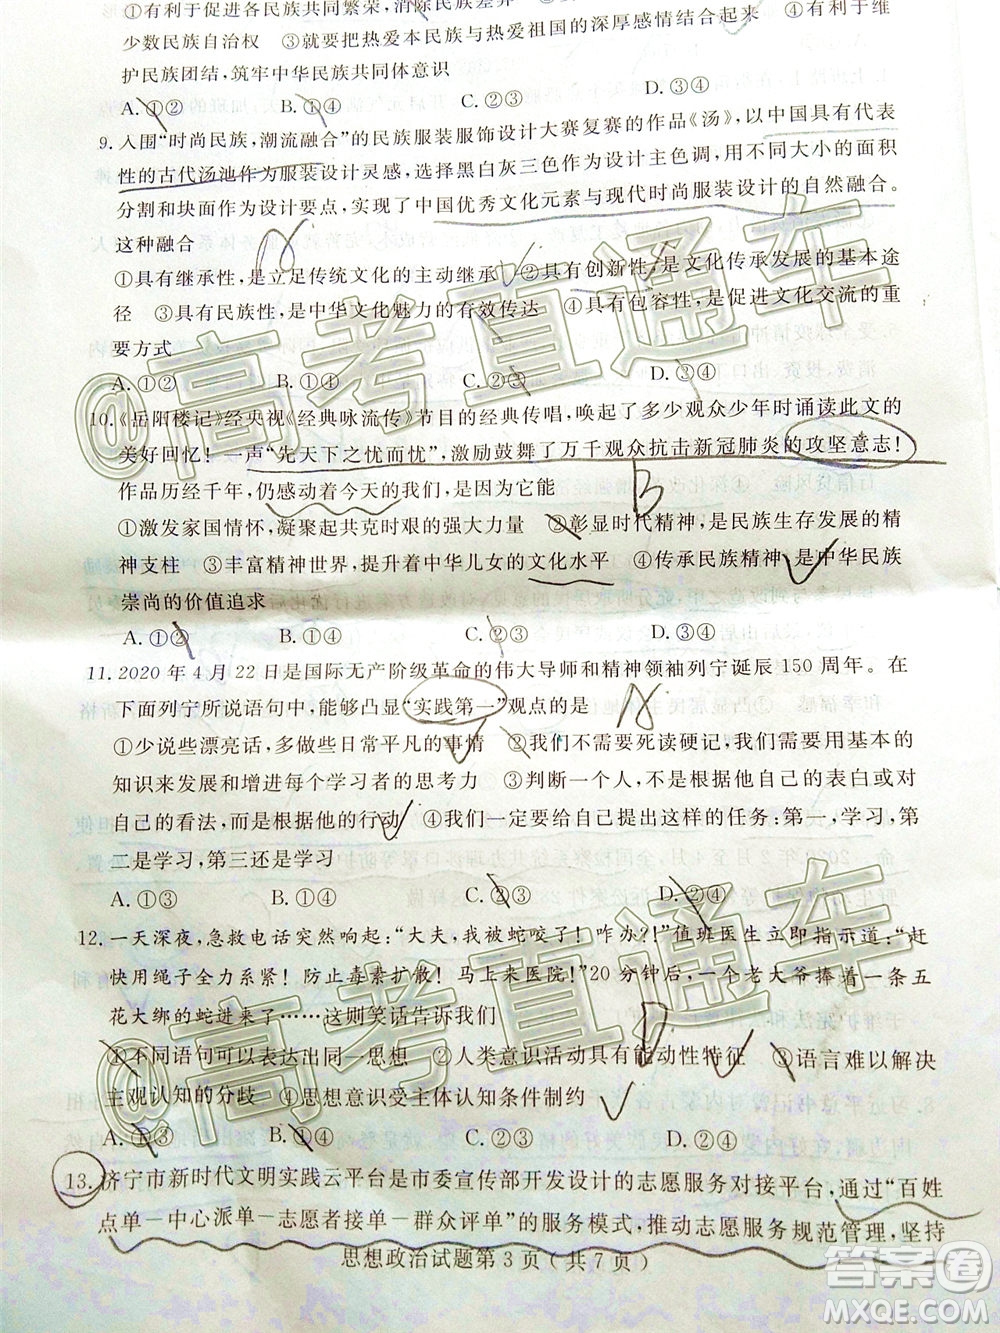 ①有利于促进各民族共同繁荣，消除民族差异
少数民族自治权　③就要把热爱本民族与热爱祖国的深厚感情结合起来　④有利于维
护民族团结，筑牢中华民族共同体意识
A. ①②　B. ①③　C. ②③　D. ③④
9. 入围“时尚民族，潮流融合”的民族服装服饰设计大赛复赛的作品《汤》，以中国具有代表
性的古代汤池作为服装设计灵感，选择黑白灰三色作为设计主色调，用不同大小的面积
分割和块面作为设计要点，实现了中国优秀文化元素与现代时尚服装设计的自然融合。
这种融合
①具有继承性，是立足传统文化的主动继承　②具有创新性，是文化传承发展的基本途
径　③具有民族性，是中华文化魅力的有效传达　④具有包容性，是促进文化交流的重
要方式
A. ①②　B. ①④　C. ②③　D. ③④
10.《岳阳楼记》经央视《经典咏流传》节目的经典传唱，唤起了多少观众少年时诵读此文的
美好回忆！一声“先天下之忧而忧”，激励鼓舞了万千观众抗击新冠肺炎的攻坚意志！
作品历经千年，仍感动着今天的我们，是因为它能
①激发家国情怀，凝聚起共克时艰的强大力量　②彰显时代精神，是民族生存发展的精
神支柱　③丰富精神世界，提升中华儿女的文化水平　④传承民族精神，是中华民族
崇尚的价值追求
A. ①②　B. ①④　C. ②③　D. ③④
11. 2020 年 4 月 22 日是国际无产阶级革命的伟大导师和精神领袖列宁诞辰 150 周年。在
下面列宁所说语句中，能够凸显“实践第一”观点的是
①少说些漂亮话，多做些日常平凡的事情　②我们不需要死读硬记，我们要用基本的
知识来发展和增进每个学习者的思考力　③判断一个人，不是根据他自己的表白或对
自己的看法，而是根据他的行动　④我们一定要给自己提出这样的任务：第一，学习，第
二是学习，第三还是学习
A. ①③　B. ①④　C. ②③　D. ②④
12. 一天深夜，急救电话突然响起：“大夫，我被蛇咬了！咋办?!”值班医生立即指示道：“赶
快用绳子全力系紧！防止毒素扩散！马上来医院！”20 分钟后，一个老大爷捧着一条五
花大绑的蛇进来了……这则笑话告诉我们
①不同语句可以表达出同一思想　②人类意识活动具有能动性特征　③语言难以解决
主观认知的分歧　④思想意识受主体认知条件制约
A. ①③　B. ①④　C. ②③　D. ②④
13. 济宁市新时代文明实践云平台是市委宣传部开发设计的志愿服务对接平台，通过“百姓
点单－中心派单－志愿者接单－群众评单”的服务模式，推动志愿服务规范管理，坚持
思想政治试题第 3 页（共 7 页）
@高考直通车
@高考直通车
A
B
A
D
答案圈
MXQE.COM